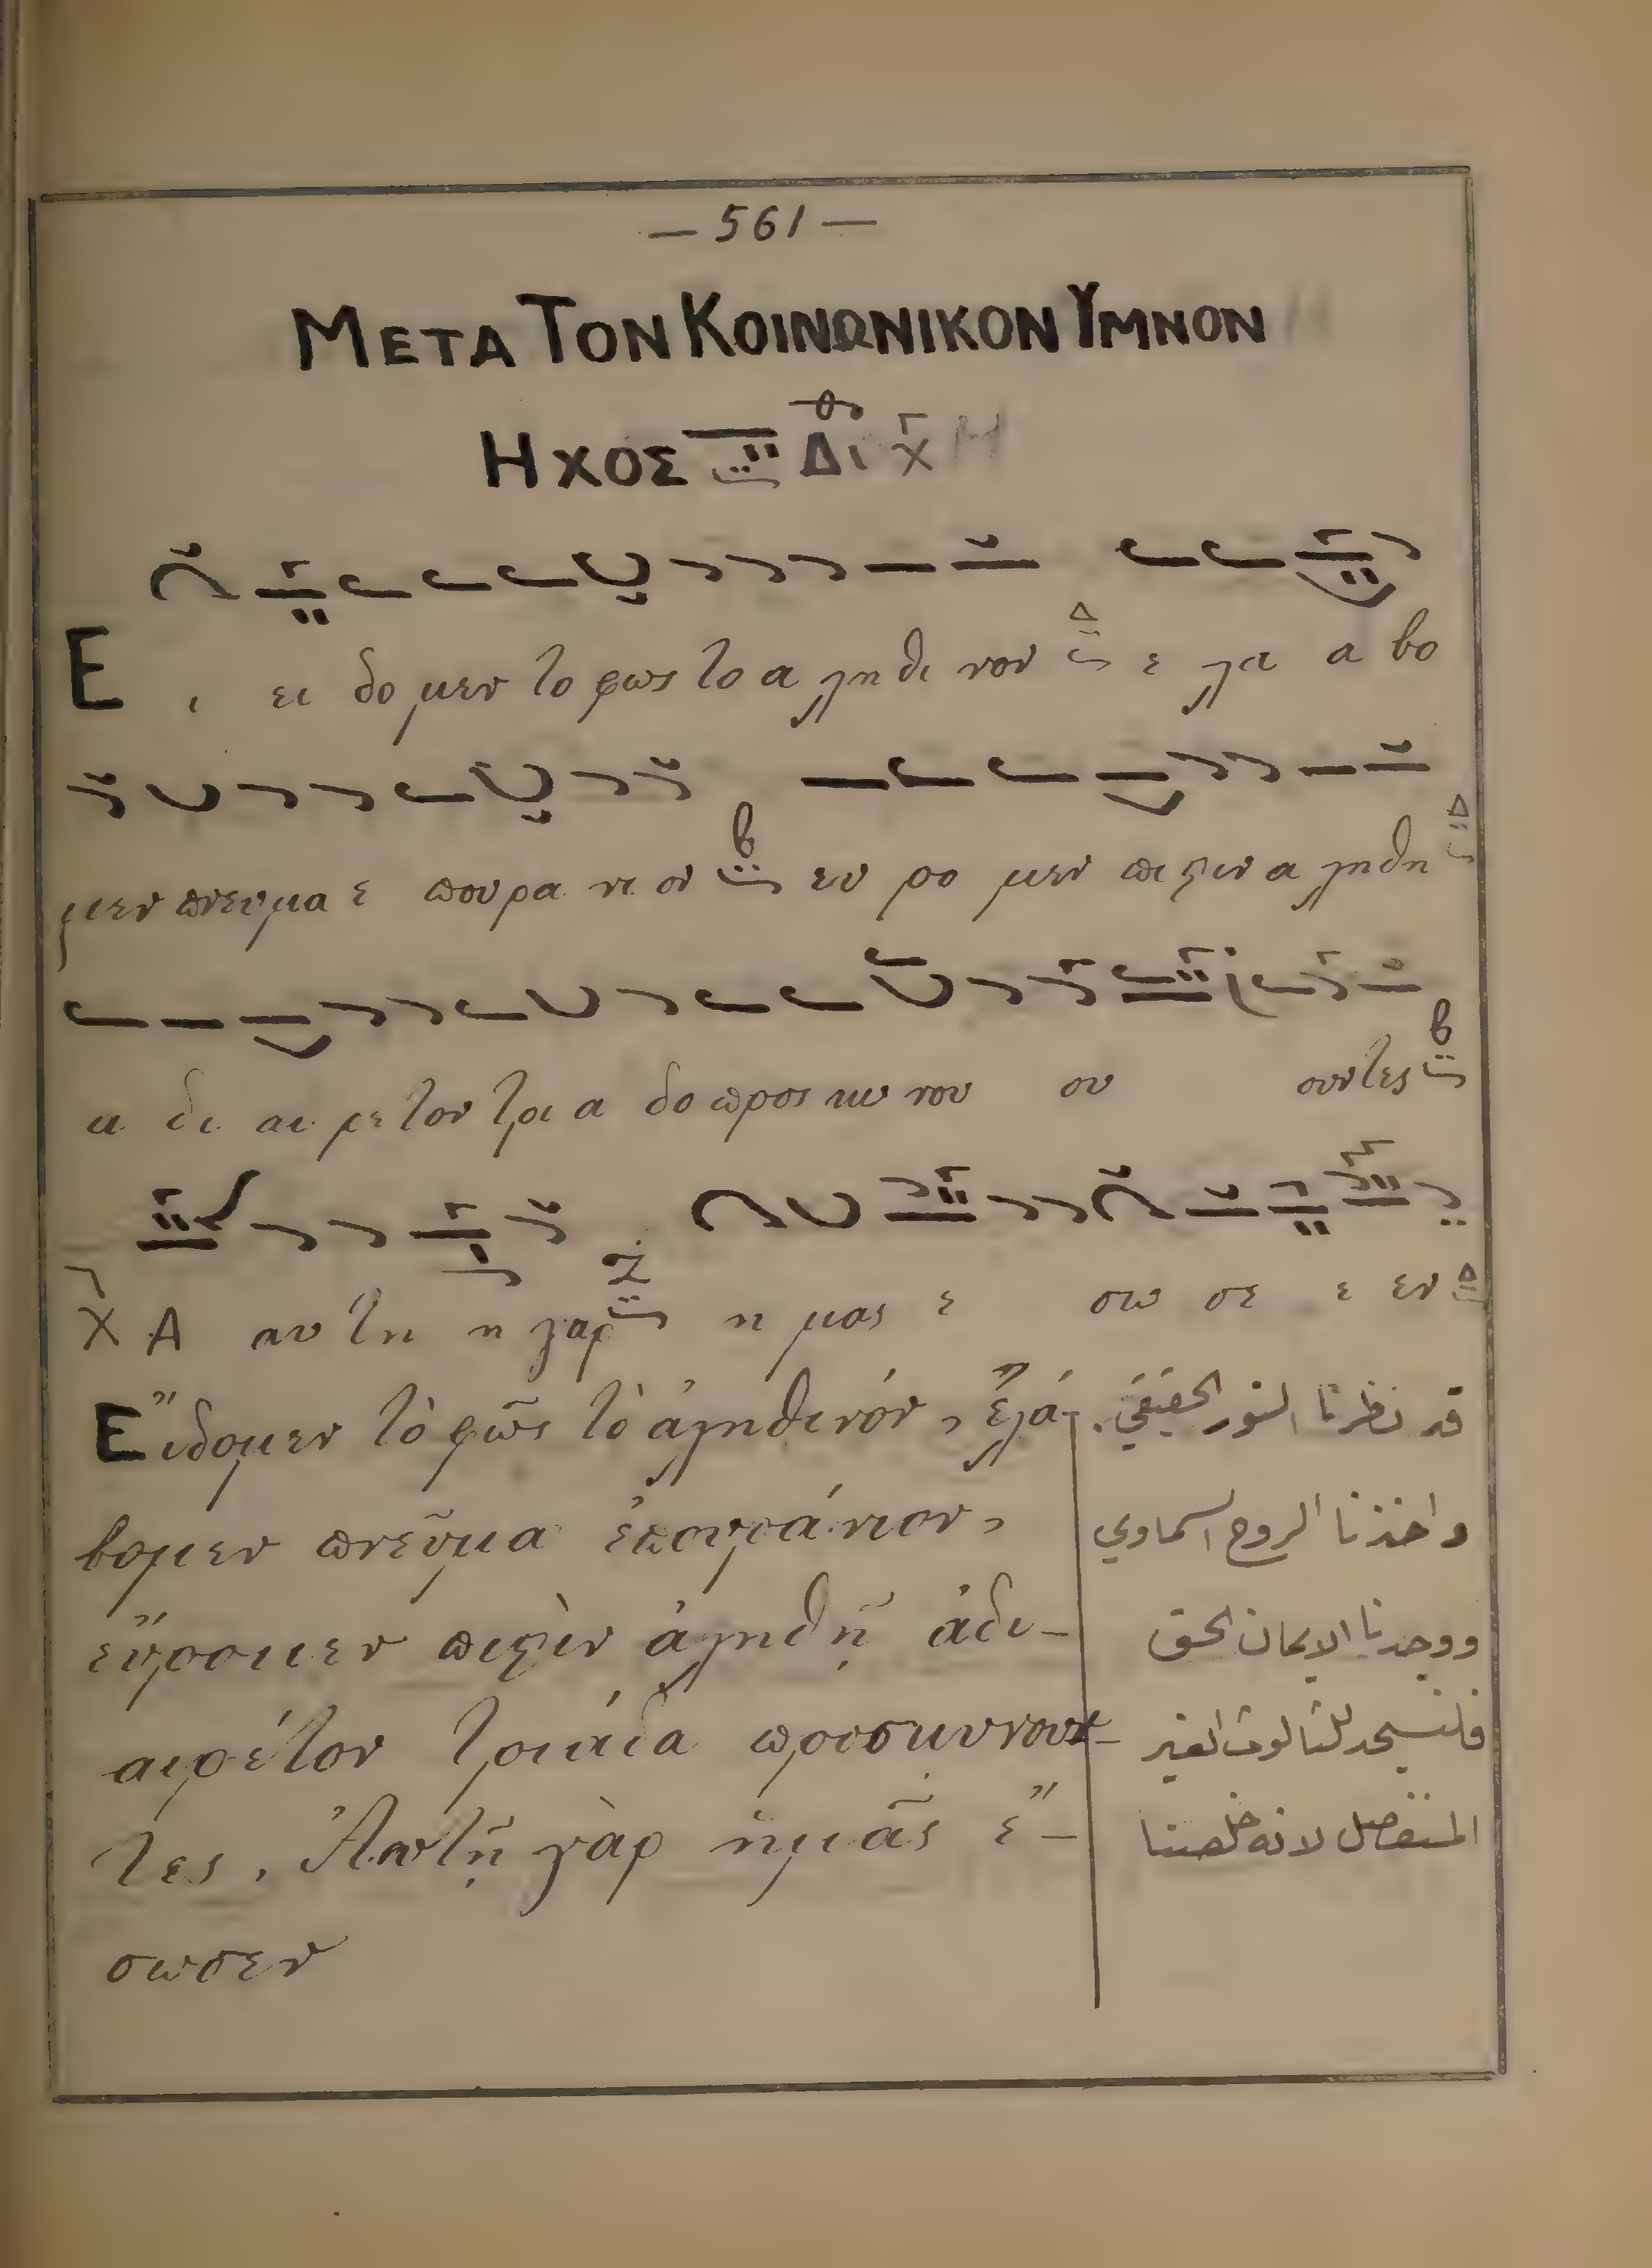 — 561 —
ΜΕΤΑ ΤΟΝ ΚΟΙΝΩΝΙΚΟΝ ΫΜΝΟΝ
ΗΧΟΣ Δι χ
Ε ι ει δο μεν το φως το α λη θι νον Δ ε λα α βο
μεν πνευμα ε πουρα νι ον β ευ ρο μεν πιϛιν α ληθη Δ
α δι αι ρε τον τρι α δα προσ κυ νου ου ουντες β
χ Α αυ τη η γαρ Ζ η μας ε σω σε ε εν Δ
Εἴδομεν τὸ φῶς τὸ ἀληθινόν, ἐλά-
βομεν πνεῦμα ἐπουράνιον,
εὕρομεν πιϛὶν ἀληθῆ ἀδι-
αιρέτον τριάδα προσκυνουν-
τες. Ἀυτῆ γὰρ ἡμᾶς ἔ-
σωσεν
قد نظرنا النور الحقيقي.
واخذنا الروح السماوي
ووجدنا الايمان الحق
فلنسجد للثالوث الغير
المنفصل لانه خلصنا